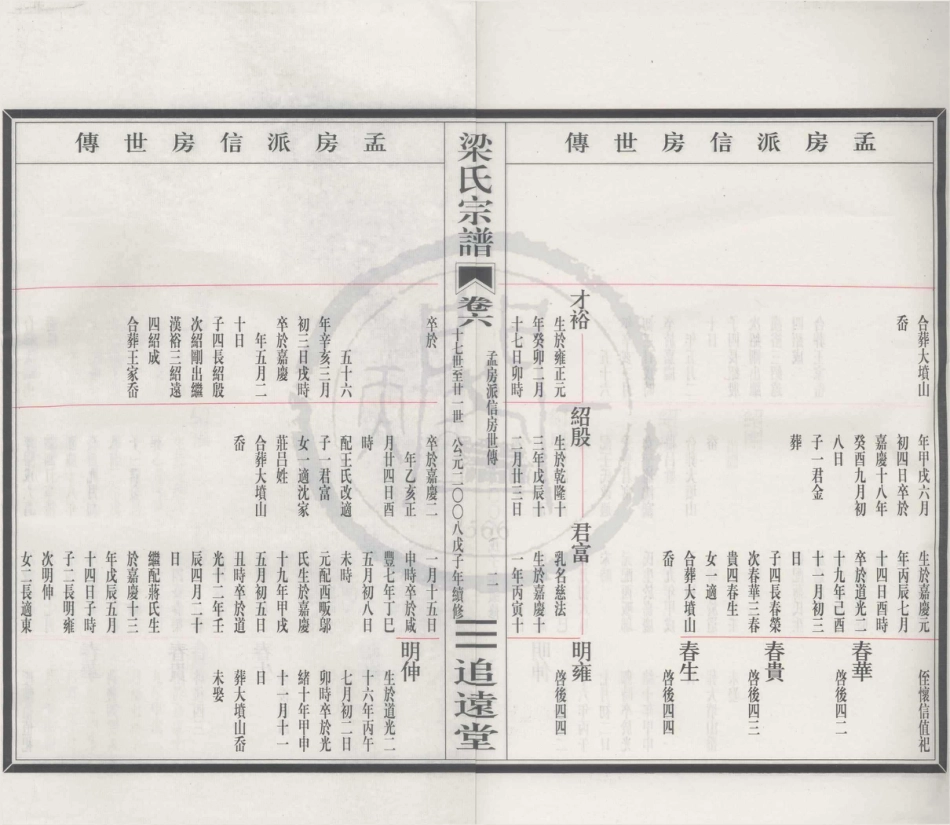 孟房派信房世傳
合葬大墳山
岙
年甲戌六月
初四日卒於
嘉慶十八年
癸酉九月初
八日
子一君金
葬
生於嘉慶元
年丙辰七月
十四日酉時
卒於道光二
十九年己酉
十一月初三
日
子四長春榮
次春華三春
貴四春生
女一適
合葬大墳山
岙
侄懷信值祀
春華
啓後四二
春貴
啓後四三
春生
啓後四四
才裕
生於雍正元
年癸卯二月
十七日卯時
紹殷
生於乾隆十
三年戊辰十
二月廿三日
君富
乳名慈法
生於嘉慶十
一年丙寅十
明雍
啓後四四
梁氏宗譜
卷六
孟房派信房世傳
十七世至廿一世
公元二〇〇八戊子年續修
二一
追遠堂
孟房派信房世傳
卒於
五十六
年辛亥三月
初三日戌時
卒於嘉慶
年五月二
十日
子四長紹殷
次紹剛出繼
漢裕三紹遠
四紹成
合葬王家岙
卒於嘉慶二
年乙亥正
月廿四日酉
時
配王氏改適
子一君富
女一適沈家
莊呂姓
合葬大墳山
岙
一月十五日
申時卒於咸
豐七年丁巳
五月初八日
未時
元配西畈鄔
氏生於嘉慶
十九年甲戌
五月初五日
丑時卒於道
光十二年壬
辰四月二十
日
繼配蔣氏生
於嘉慶十三
年戊辰五月
十四日子時
子二長明雍
次明伸
女二長適東
明伸
生於道光二
十六年丙午
七月初二日
卯時卒於光
緒十年甲申
十一月十一
日
葬大墳山岙
未娶